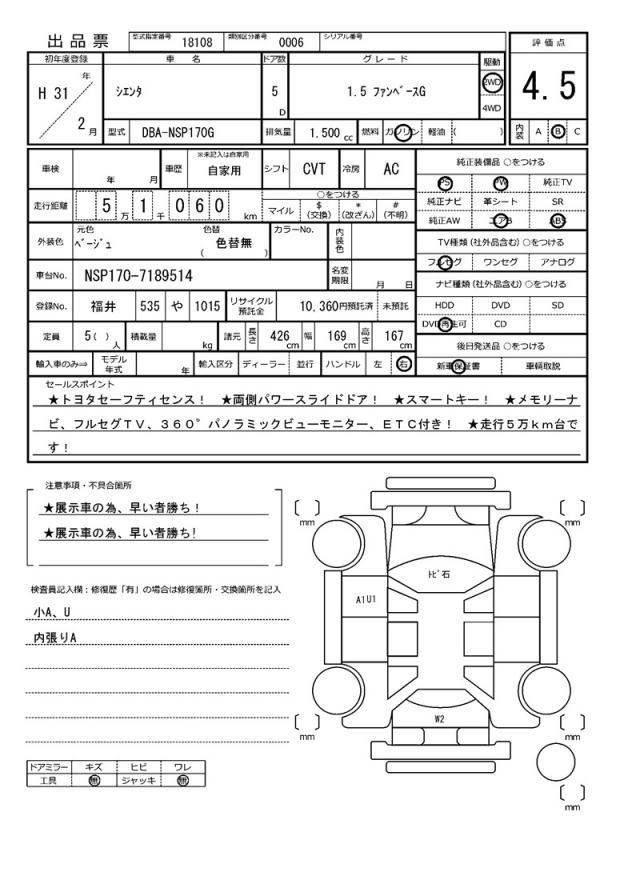 出品票
型式指定番号 18108 類別区分番号 0006 シリアル番号
評価点
4.5
内装 A B C
初年度登録 車名 ドア数 グレード 駆動
H 31 年 2 月
シエンタ 5 D 1.5 ファンベースG 2WD 4WD
型式 DBA-NSP170G 排気量 1.500 cc 燃料 ガソリン 軽油 ( )
車検 年 月 車歴 ※未記入は自家用 自家用 シフト CVT 冷房 AC
走行距離 5 万 1 千 0 6 0 km
○をつける
マイル $ (交換) * (改ざん) # (不明)
外装色 元色 ベージュ 色替 ( 色替無 ) カラーNo. 内装色
車台No. NSP170-7189514 名変期限 月 日
登録No. 福井 535 や 1015 リサイクル預託金 10,360円預託済 未預託
定員 5 ( ) 人 積載量 kg 諸元 長さ 426 cm 幅 169 cm 高さ 167 cm
輸入車のみ⇒ モデル年式 年 輸入区分 ディーラー 並行 ハンドル 左 右
純正装備品 ○をつける
PS PW 純正TV
純正ナビ 革シート SR
純正AW エアB ABS
TV種類 (社外品含む) ○をつける
フルセグ ワンセグ アナログ
ナビ種類 (社外品含む) ○をつける
HDD DVD SD
DVD再生可 CD
後日発送品 ○をつける
新車保証書 車輌取説
セールスポイント
★トヨタセーフティセンス! ★両側パワースライドドア! ★スマートキー! ★メモリーナ
ビ、フルセグTV、360°パノラミックビューモニター、ETC付き! ★走行5万km台で
す!
注意事項・不具合箇所
★展示車の為、早い者勝ち!
★展示車の為、早い者勝ち!
検査員記入欄:修復歴「有」の場合は修復箇所・交換箇所を記入
小A、U
内張りA
ドアミラー キズ ヒビ ワレ
工具 無 ジャッキ 無
[ ] mm
[ ] mm
トビ石
A1 U1
W2
[ ] mm
[ ] mm
[ ] mm